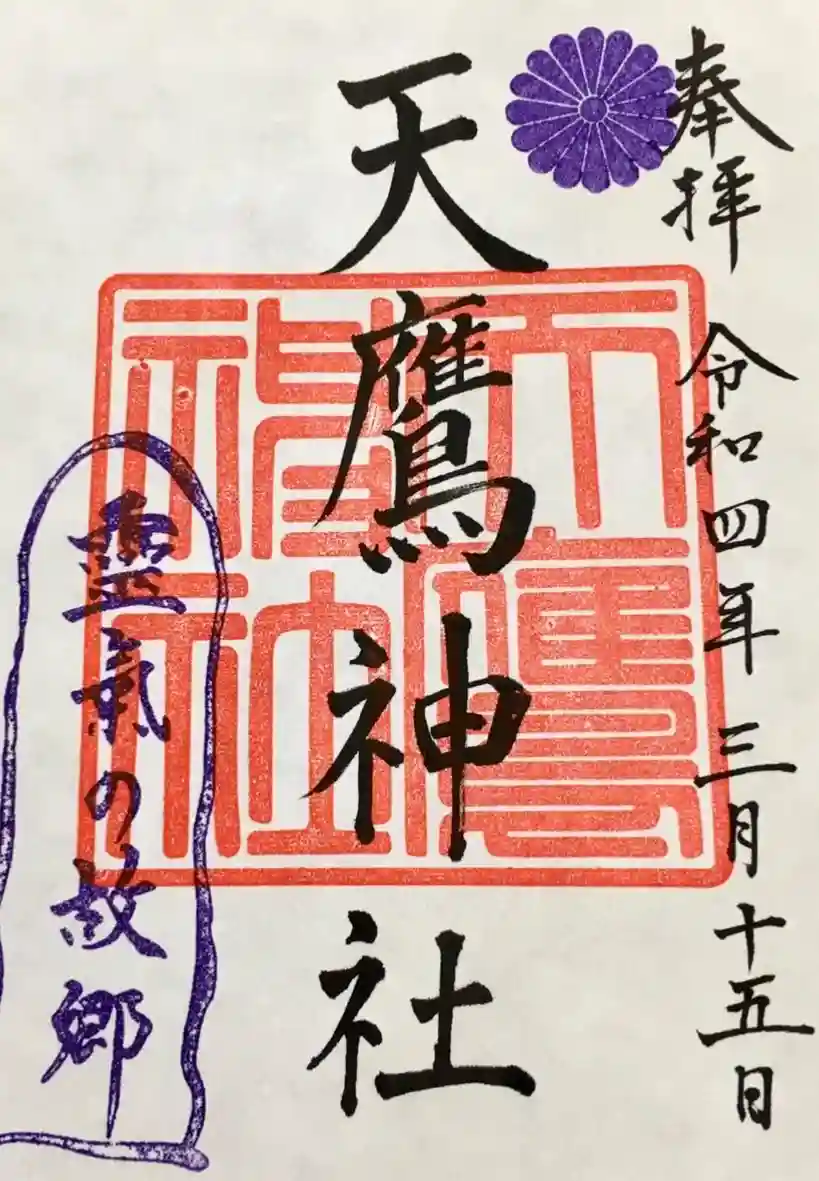 奉拝 令和四年 三月 十五日
天鷹神社
天鷹神社
靈氣の故郷